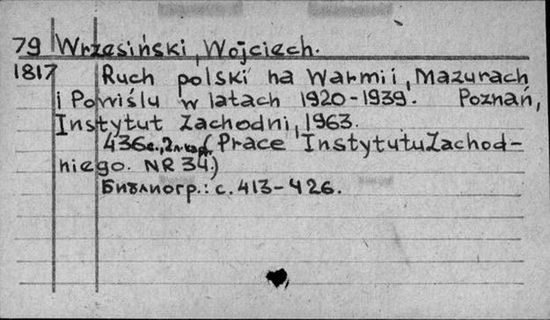 79 Wrzesiński, Wojciech.
1817 Ruch polski na Warmii, Mazurach
i Powiślu w latach 1920-1939. Poznań,
Instytut Zachodni, 1963.
436с., 2л. кар. (Prace InstytutuZachod-
niego. NR 34.)
Библиогр.: с. 413-426.